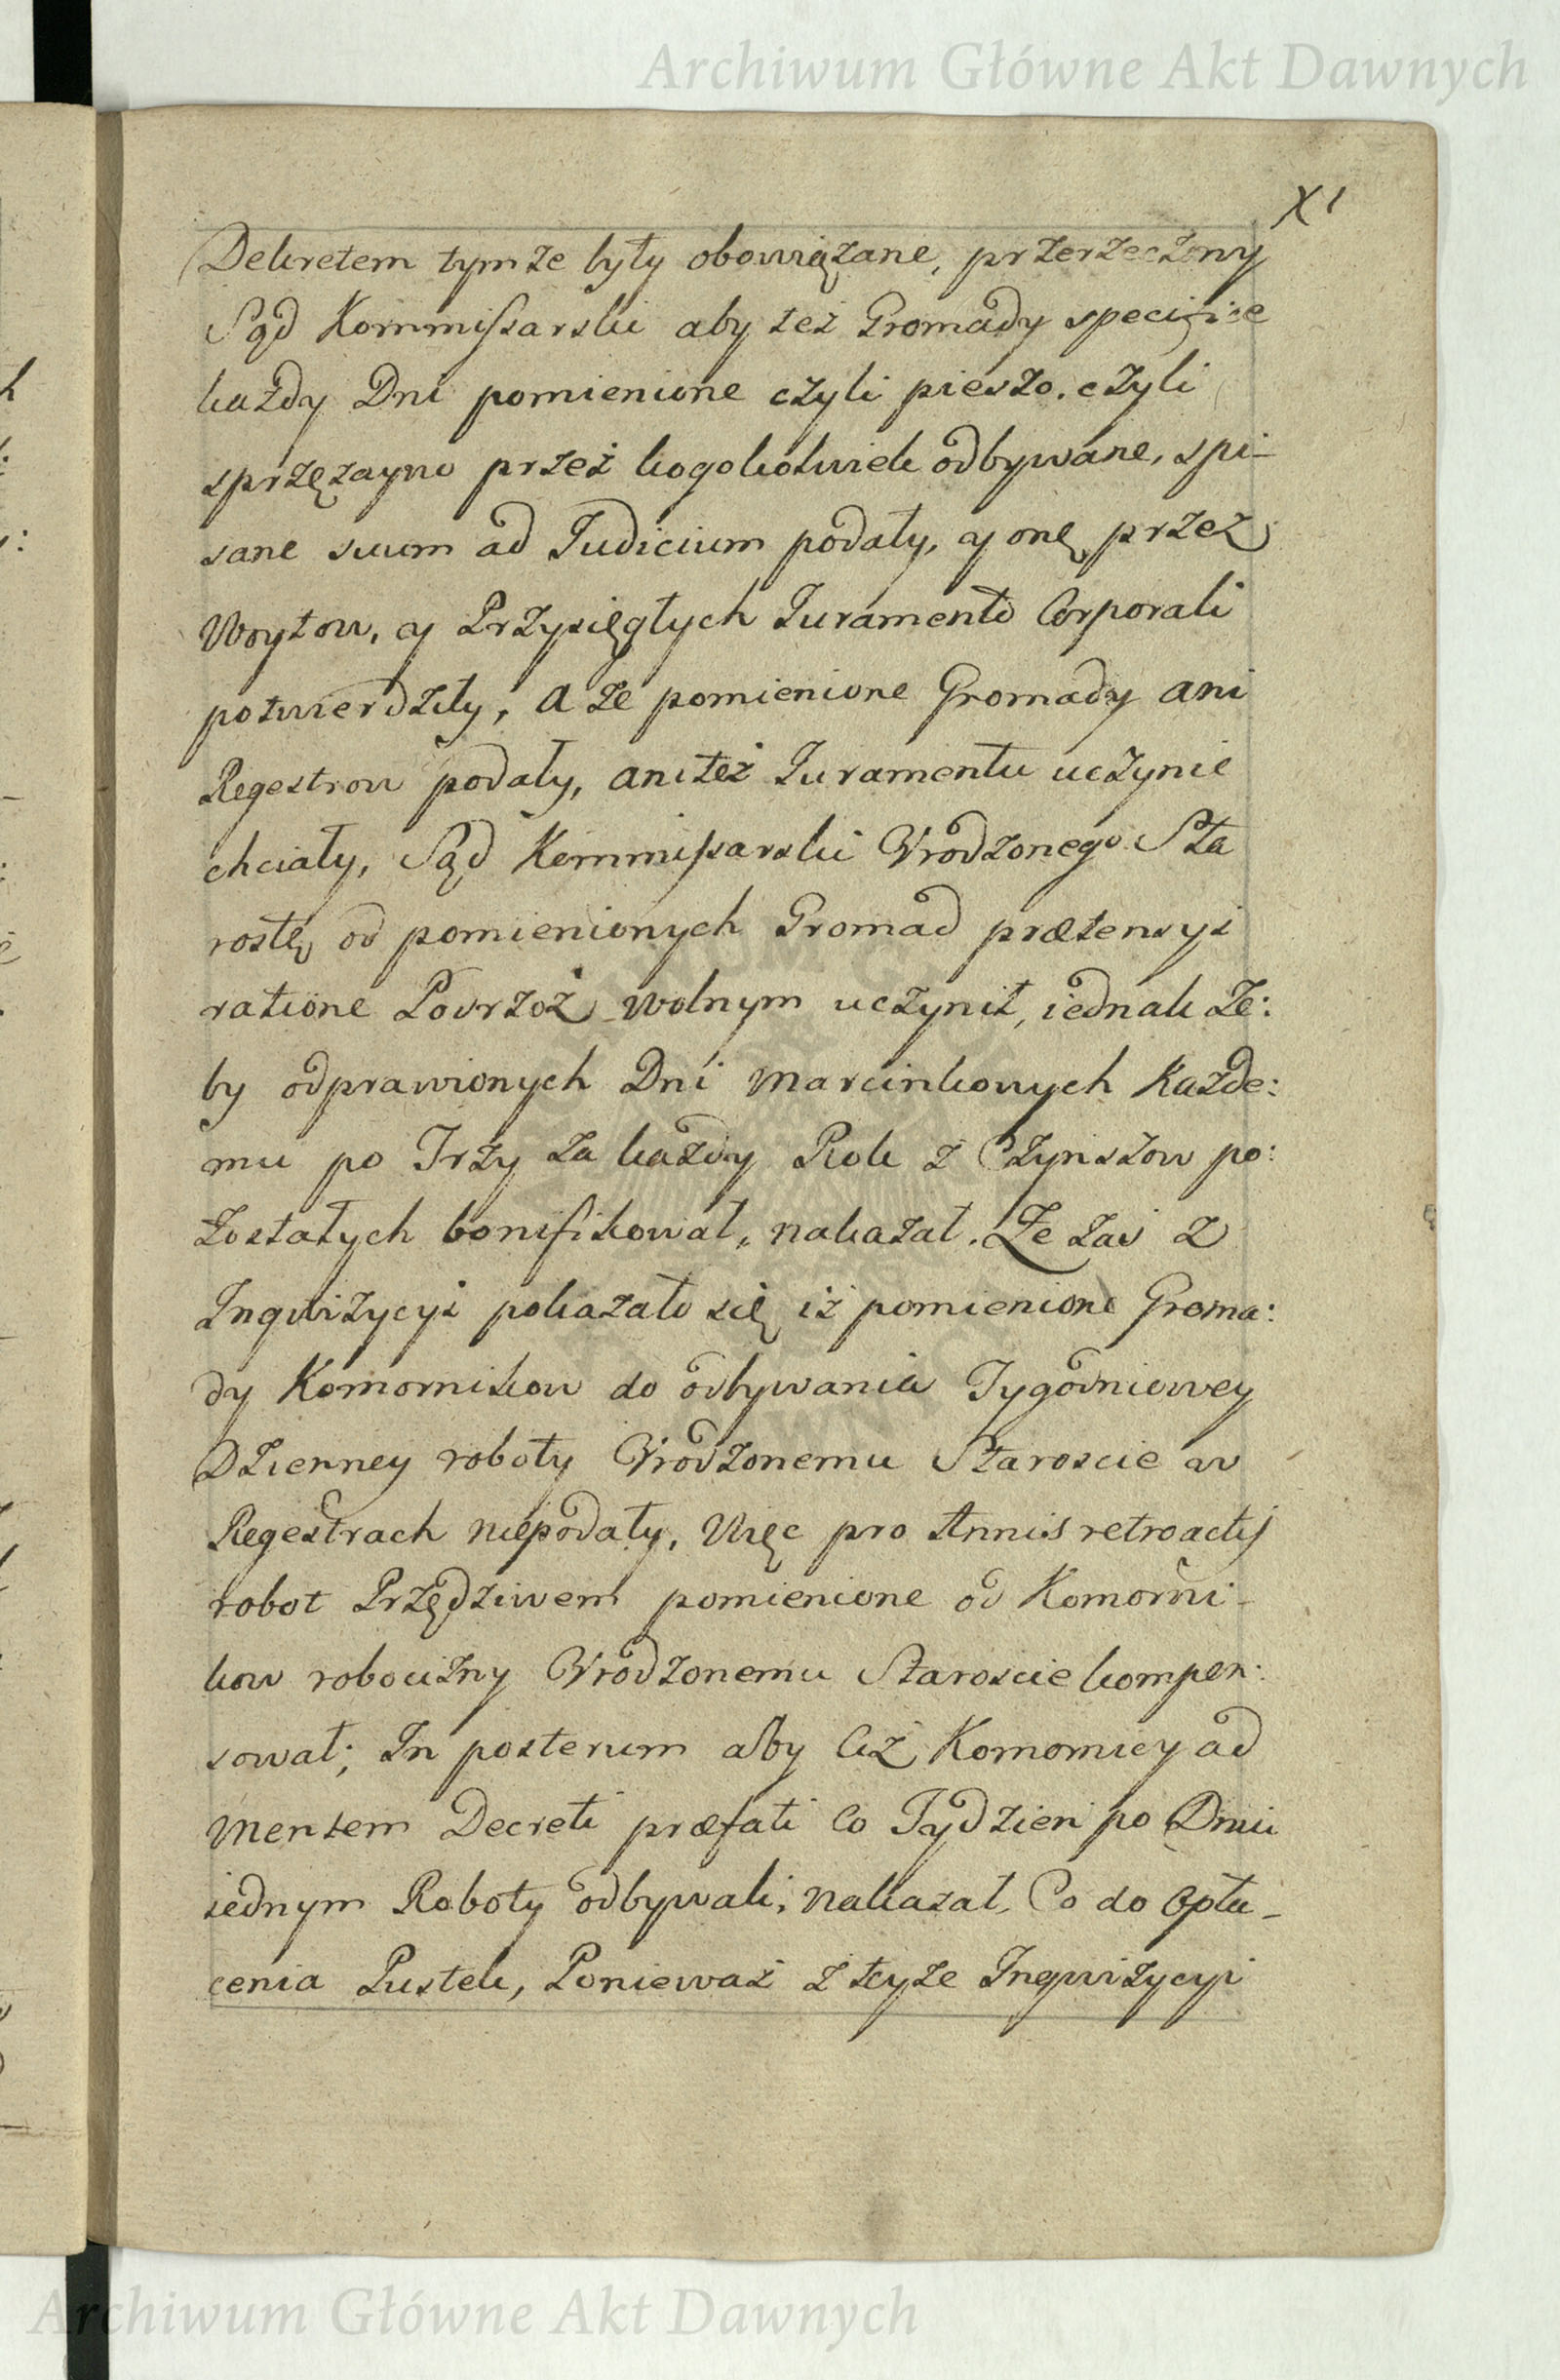 Archiwum Główne Akt Dawnych
XI
Dekretem tymże były obowiązane, przerzeczony
Sąd Kommissarski aby też Gromady specifice
każdy Dni pomienione czyli pieszo. czyli
sprzężayno przez kogokolwiek odbywane, spi-
sane suum ad Judicium podały, y onę przez
Woytow, y Przysięgłych Juramento Corporali
potwierdziły, a że pomienione Gromady ani
Regestrow podały, ani też Juramentu uczynić
chciały, Sąd Kommissarski Vrodzonego Sta
rostę od pomienionych Gromad prætensyi
ratione Podrżoż wolnym uczynił, iednak że:
by odprawionych Dni Marcinkowych Każde:
mu po Trzy za każdy Rok z Czynszow po:
zostałych bonifikował, nakazał. Że zaś z
Inqwizycyi pokazało się iż pomienione Groma:
dy Komornikow do odbywania Tygodniowey
Dzienney roboty Vrodzonemu Staroscie w
Regestrach niepodały, Więc pro Annis retroactis
robot Przędziwem pomienione od Komorni-
kow robocizny Vrodzonemu Staroscie kompen:
sował; In posterum aby Ciż Komornicy ad
mentem Decreti præfati Co Tydzien po Dniu
iednym Roboty odbywali, nakazał, Co do Opła-
cenia Pustek, Ponieważ z teyże Inqwizycyi
Archiwum Główne Akt Dawnych